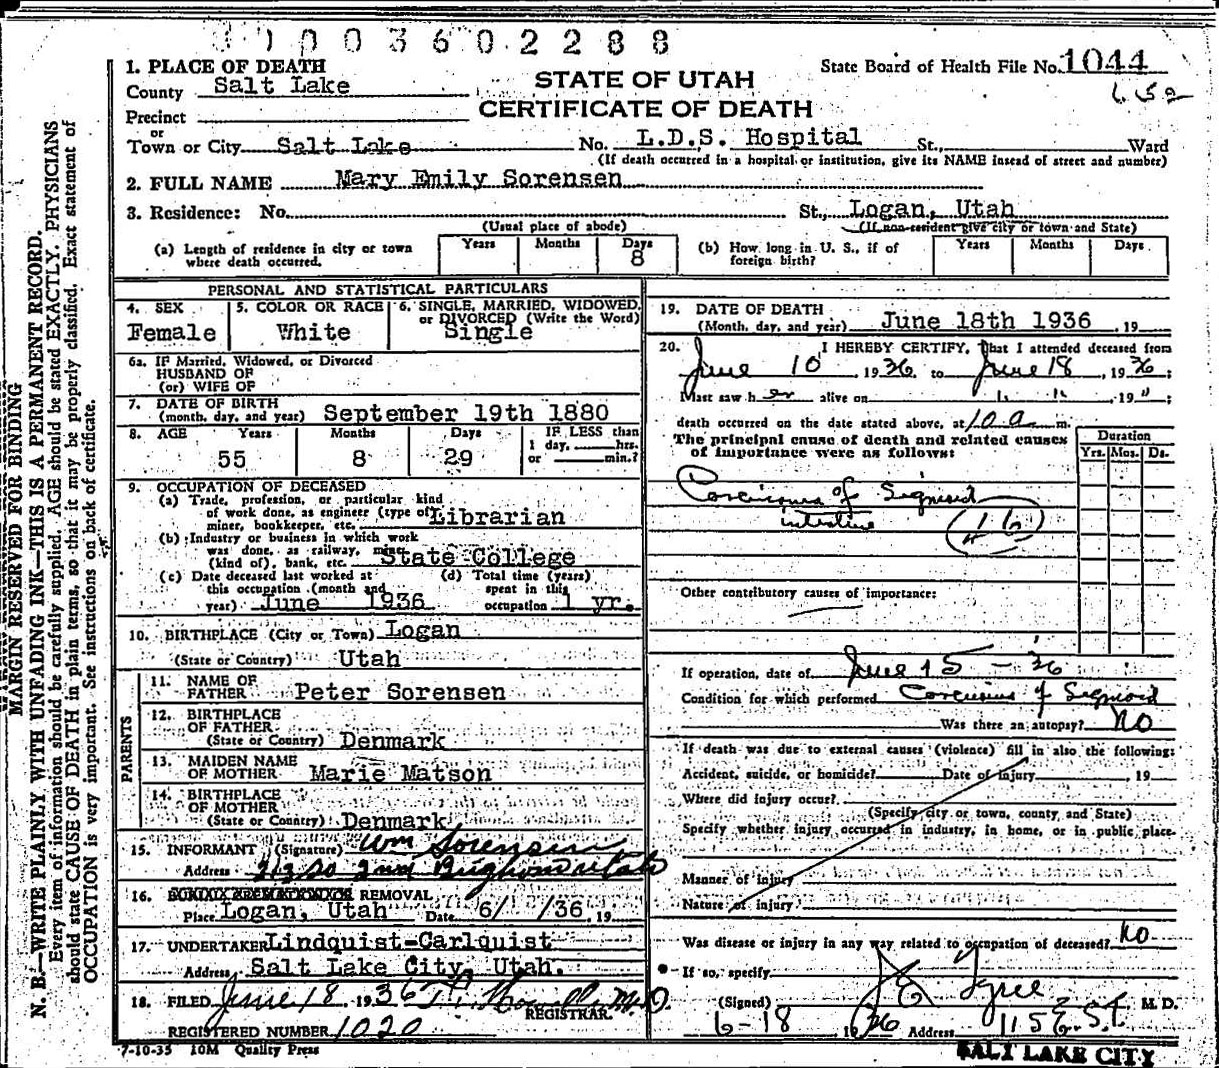 1003602288
1. PLACE OF DEATH
County Salt Lake
STATE OF UTAH
CERTIFICATE OF DEATH
State Board of Health File No. 1044
Precinct
or
Town or City Salt Lake No. L.D.S. Hospital St., Ward
(If death occurred in a hospital or institution, give its NAME insead of street and number)
2. FULL NAME Mary Emily Sorensen
3. Residence: No. St., Logan, Utah
(Usual place of abode) (If non-resident give city or town and State)
(a) Length of residence in city or town where death occurred. Years Months Days 8
(b) How long in U. S., if of foreign birth? Years Months Days
PERSONAL AND STATISTICAL PARTICULARS
4. SEX Female
5. COLOR OR RACE White
6. SINGLE, MARRIED, WIDOWED, or DIVORCED (Write the Word) Single
6a. IF Married, Widowed, or Divorced
HUSBAND OF
(or) WIFE OF
7. DATE OF BIRTH
(month, day, and year) September 19th 1880
8. AGE Years Months Days IF LESS than
1 day, hrs.
or min.?
55 8 29
9. OCCUPATION OF DECEASED
(a) Trade, profession, or particular kind
of work done, as engineer (type of)
miner, bookkeeper, etc. Librarian
(b) Industry or business in which work
was done, as railway, mine
(kind of), bank, etc. State College
(c) Date deceased last worked at
this occupation (month and
year) June 1936
(d) Total time (years)
spent in this
occupation 1 yr.
10. BIRTHPLACE (City or Town) Logan
(State or Country) Utah
PARENTS
11. NAME OF
FATHER Peter Sorensen
12. BIRTHPLACE
OF FATHER
(State or Country) Denmark
13. MAIDEN NAME
OF MOTHER Marie Matson
14. BIRTHPLACE
OF MOTHER
(State or Country) Denmark
15. INFORMANT (Signature) Wm Sorensen
Address 213 So 2nd Brigham Utah
16. REMOVAL
Place Logan, Utah Date 6/ /36 19
17. UNDERTAKER Lindquist-Carlquist
Address Salt Lake City, Utah.
18. FILED June 18 1936 M.D.
REGISTRAR.
REGISTERED NUMBER 1020
7-10-35 10M Quality Press
19. DATE OF DEATH
(Month, day, and year) June 18th 1936, 19
20. I HEREBY CERTIFY, That I attended deceased from
June 10, 1936, to June 18, 1936;
I last saw her alive on " ", 19";
death occurred on the date stated above, at 10 a m.
The principal cause of death and related causes
of importance were as follows:
Duration
Yrs. Mos. Ds.
Carcinoma of Sigmoid
intestine
(46)
Other contributory causes of importance:
If operation, date of June 15 - 36
Condition for which performed Carcinoma of Sigmoid
Was there an autopsy? No
If death was due to external causes (violence) fill in also the following:
Accident, suicide, or homicide? Date of injury, 19
Where did injury occur?
(Specify city or town, county, and State)
Specify whether injury occurred in industry, in home, or in public place
Manner of injury
Nature of injury
Was disease or injury in any way related to occupation of deceased? No
If so, specify
(Signed) Tyree M. D.
6-18 1936 Address 115 E. S.T.
SALT LAKE CITY
MARGIN RESERVED FOR BINDING
N. B.—WRITE PLAINLY WITH UNFADING INK—THIS IS A PERMANENT RECORD.
Every item of information should be carefully supplied. AGE should be stated EXACTLY. PHYSICIANS
should state CAUSE OF DEATH in plain terms, so that it may be properly classified. Exact statement of
OCCUPATION is very important. See instructions on back of certificate.